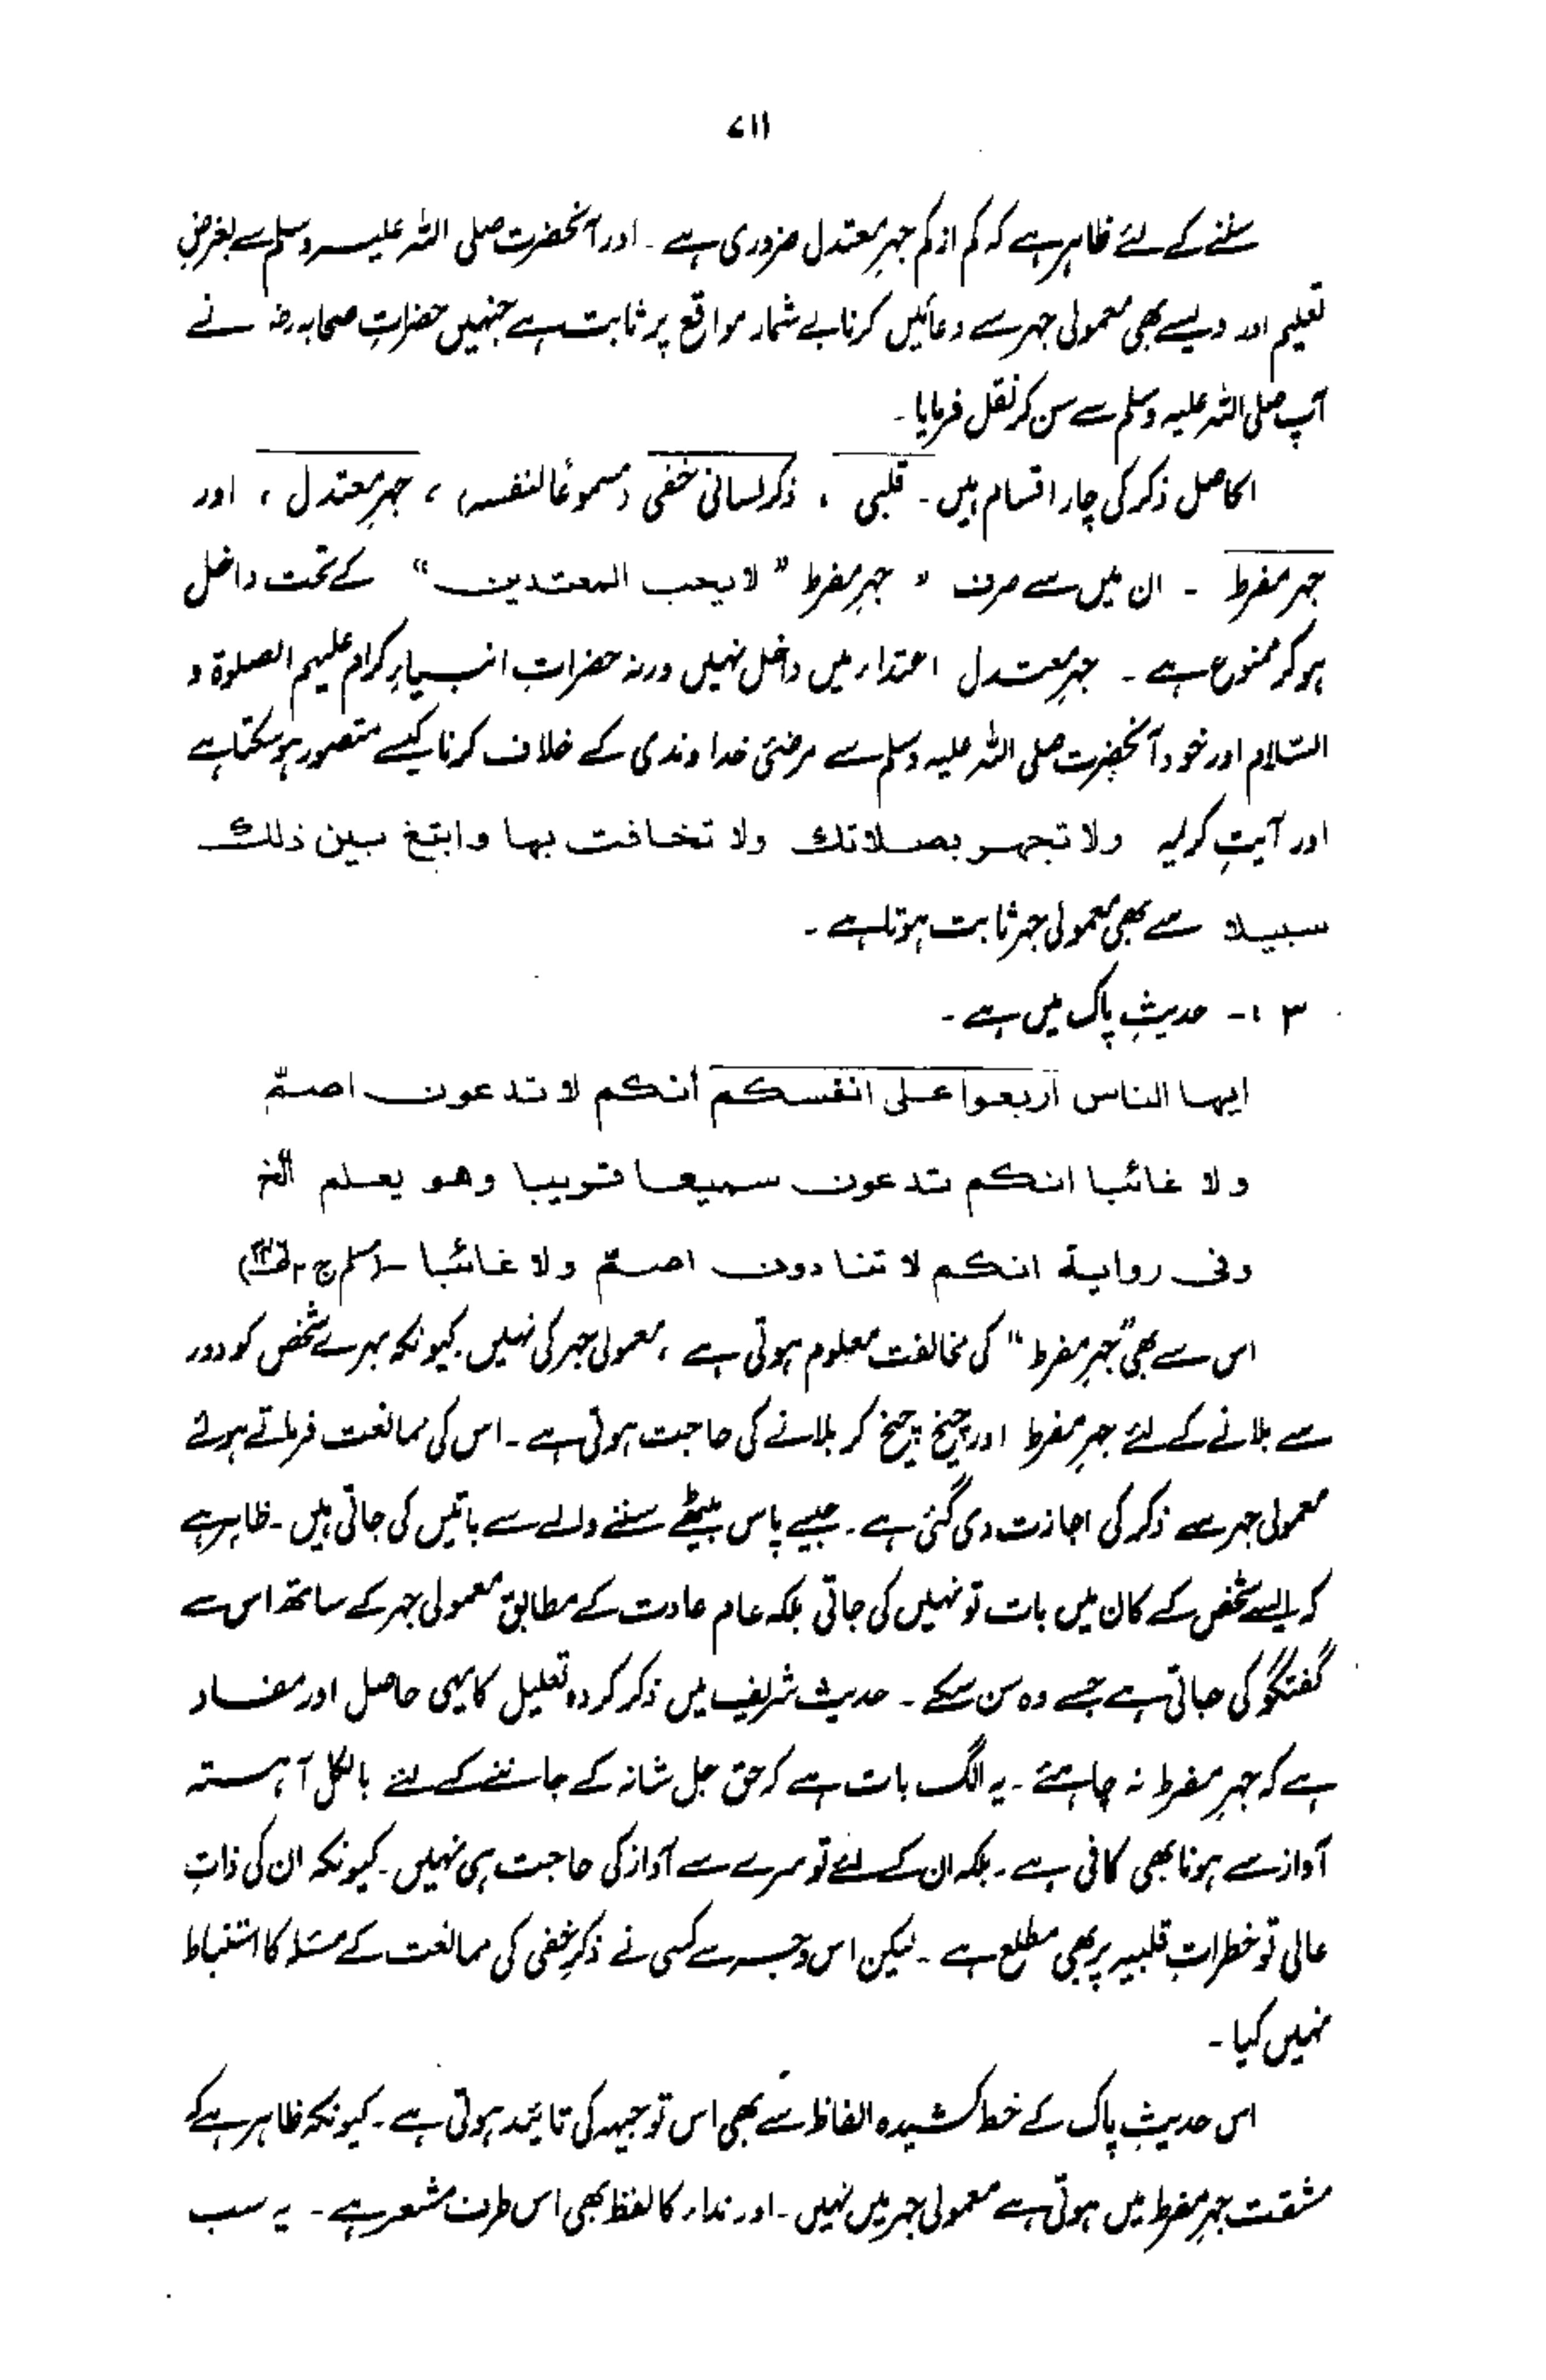 ۷۱۱
سننے کے لئے ظاہر ہے کہ کم از کم جہرِ معتدل ضروری ہے ۔ اور آنحضرت صلی اللہ علیہ وسلم سے بغرضِ
تعلیم اور ویسے بھی معمولی جہر سے دعائیں کرنا بے شمار مواقع پر ثابت ہے جنہیں حضراتِ صحابہ رضؓ نے
آپ صلی اللہ علیہ وسلم سے سن کر نقل فرمایا ۔
الحاصل ذکر کی چار اقسام ہیں ۔ قلبی ، ذکر لسانی خفی (مسموعًا لنفسہ) ، جہرِ معتدل ، اور
جہر مفرط ۔ ان میں سے صرف " جہرِ مفرط " لا یحب المعتدین " کے تحت داخل
ہو کر ممنوع ہے ۔ جہرِ معتدل اعتداء میں داخل نہیں ورنہ حضراتِ انبیاءِ کرام علیہم الصلوۃ و
السّلام اور خود آنحضرت صلی اللہ علیہ وسلم سے مرضئ خداوندی کے خلاف کرنا کیسے متصور ہو سکتا ہے
اور آیتِ کریمہ ولا تجهر بصلاتك ولا تخافت بها وابتغ بین ذلك
سبیلا سے بھی معمولی جہر ثابت ہوتا ہے ۔
۱۳ ۔ حدیثِ پاک میں ہے ۔
ایها الناس اربعوا علی انفسکم انکم لا تدعون اصمّ
ولا غائبا انکم تدعون سمیعا قریبا وهو یعلم الخ
وفی روایة انکم لا تنادون اصمّ ولا غائبا ۔ (مسلم ج ۲
اس سے بھی "جہرِ مفرط" کی مخالفت معلوم ہوتی ہے ، معمولی جہر کی نہیں ۔ کیونکہ بہرے شخص کو دور
سے بلانے کے لئے جہرِ مفرط اور چیخ چیخ کر بلانے کی حاجت ہوتی ہے ۔ اس کی ممانعت فرماتے ہوئے
معمولی جہر سے ذکر کی اجازت دی گئی ہے ۔ جیسے پاس بیٹھے سننے والے سے باتیں کی جاتی ہیں ۔ ظاہر ہے
کہ ایسے شخص کے کان میں بات تو نہیں کی جاتی بلکہ عام عادت کے مطابق معمولی جہر کے ساتھ اس سے
گفتگو کی جاتی ہے جسے وہ سن سکے ۔ حدیث شریف میں ذکر کردہ تعلیل کا یہی حاصل اور مفاد
ہے کہ جہرِ مفرط نہ چاہئے ۔ یہ الگ بات ہے کہ حق جل شانہ کے جاننے کے لئے بالکل آہستہ
آواز سے ہونا بھی کافی ہے ۔ بلکہ ان کے لئے تو سرے سے آواز کی حاجت ہی نہیں ۔ کیونکہ ان کی ذاتِ
عالی تو خطراتِ قلبیہ پر بھی مطلع ہے ۔ لیکن اس وجہ سے کسی نے ذکرِ خفی کی ممانعت کے مسئلہ کا استنباط
نہیں کیا ۔
اس حدیثِ پاک کے خط کشیدہ الفاظ سے بھی اس توجیہہ کی تائید ہوتی ہے ۔ کیونکہ ظاہر ہے کہ
مشقت جہرِ مفرط میں ہوتی ہے معمولی جہر میں نہیں ۔ اور نداء کا لفظ بھی اس طرف مشعر ہے ۔ یہ سب